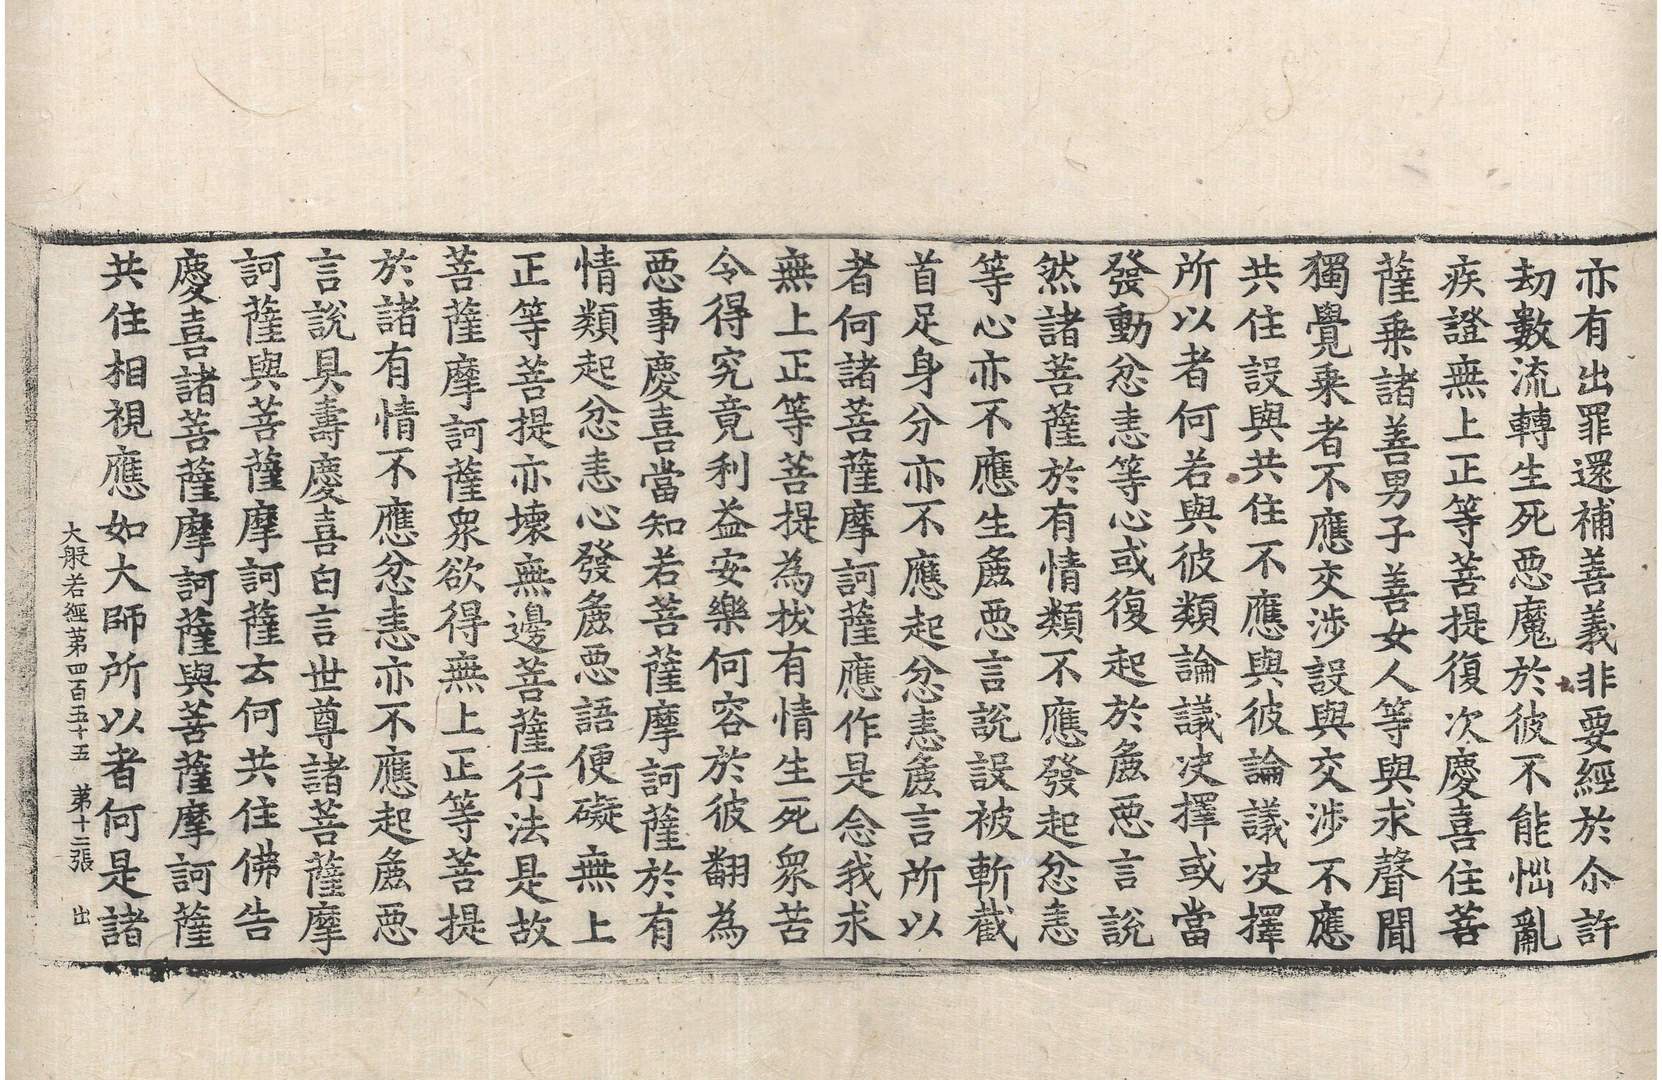 亦有出罪還補善義非要經於尒許
劫數流轉生死惡魔於彼不能惱亂
疾證無上正等菩提復次慶喜住菩
薩乗諸善男子善女人等與求聲聞
獨覺乗者不應交涉設與交涉不應
共住設與共住不應與彼論議决擇
所以者何若與彼類論議决擇或當
發動忿恚等心或復起於麁惡言說
然諸菩薩於有情類不應發起忿恚
等心亦不應生麁惡言說設被斬截
首足身分亦不應起忿恚麁言所以
者何諸菩薩摩訶薩應作是念我求
無上正等菩提為拔有情生死衆苦
令得究竟利益安樂何容於彼翻為
惡事慶喜當知若菩薩摩訶薩於有
情類起忿恚心發麁惡語便礙無上
正等菩提亦壞無邊菩薩行法是故
菩薩摩訶薩衆欲得無上正等菩提
於諸有情不應忿恚亦不應起麁惡
言說具壽慶喜白言世尊諸菩薩摩
訶薩與菩薩摩訶薩云何共住佛告
慶喜諸菩薩摩訶薩與菩薩摩訶薩
共住相視應如大師所以者何是諸
大般若經第四百五十五 第十二張 出